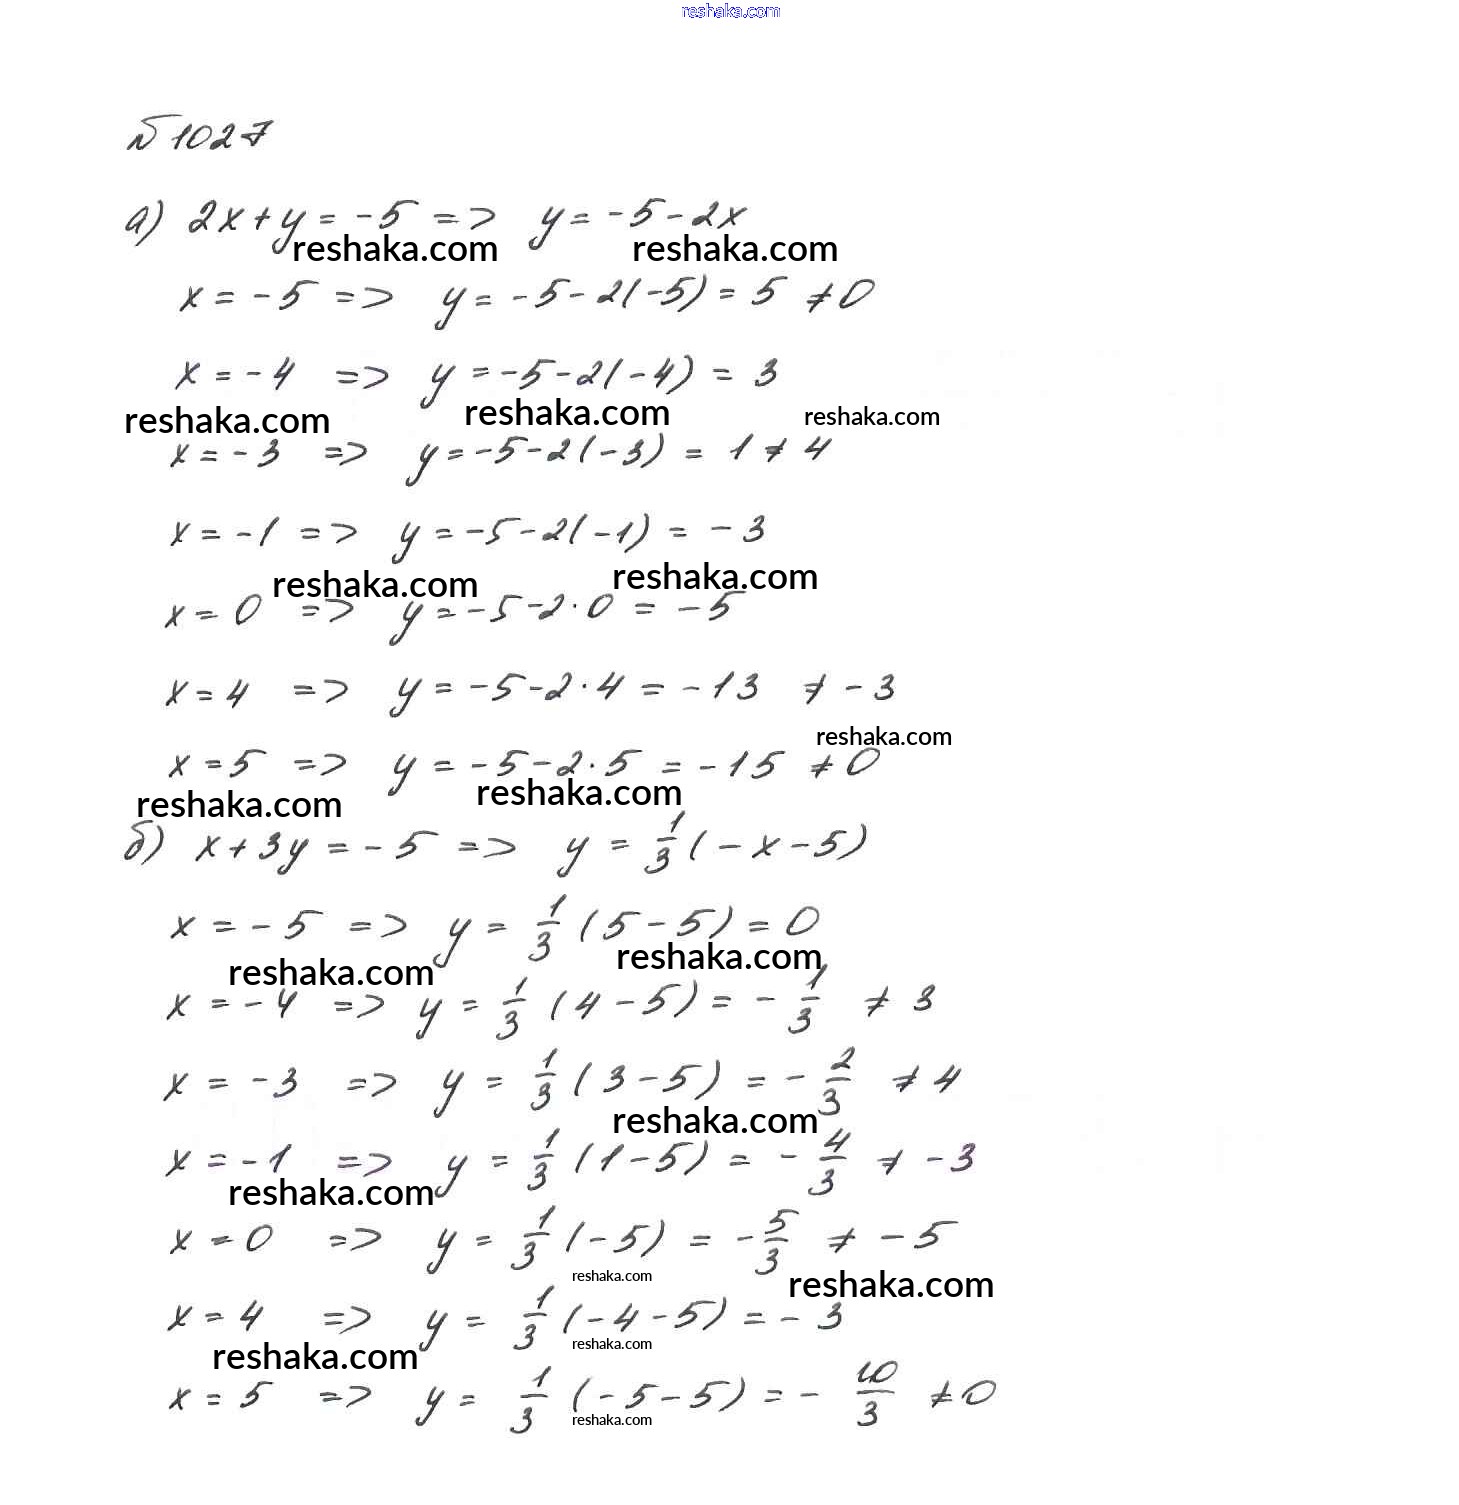 reshaka.com
№1027
а) 2x+y=-5 => y=-5-2x
reshaka.com reshaka.com
x=-5 => y=-5-2(-5)=5 ≠0
x=-4 => y=-5-2(-4)=3
reshaka.com reshaka.com reshaka.com
x=-3 => y=-5-2(-3)=1≠4
x=-1 => y=-5-2(-1)=-3
reshaka.com reshaka.com
x=0 => y=-5-2·0=-5
x=4 => y=-5-2·4=-13 ≠-3
reshaka.com
x=5 => y=-5-2·5=-15 ≠0
reshaka.com reshaka.com
б) x+3y=-5 => y=1/3(-x-5)
x=-5 => y=1/3(5-5)=0
reshaka.com reshaka.com
x=-4 => y=1/3(4-5)=-1/3 ≠3
x=-3 => y=1/3(3-5)=-2/3 ≠4
reshaka.com
x=-1 => y=1/3(1-5)=-4/3 ≠-3
reshaka.com
x=0 => y=1/3(-5)=-5/3 ≠-5
reshaka.com reshaka.com
x=4 => y=1/3(-4-5)=-3
reshaka.com reshaka.com
x=5 => y=1/3(-5-5)=-10/3 ≠0
reshaka.com